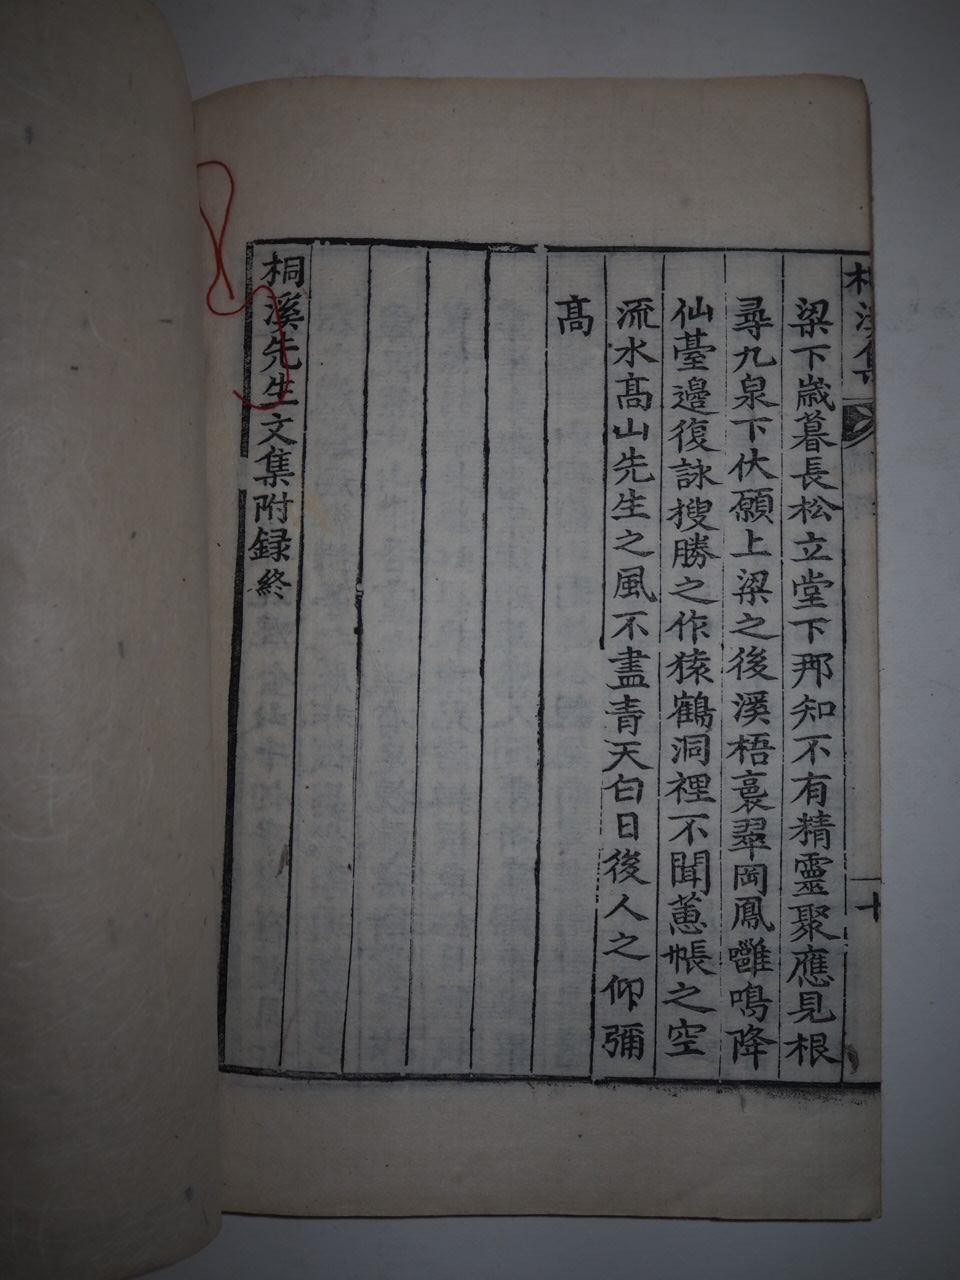 桐溪集
十
梁下歲暮長松立堂下那知不有精靈聚應見根
尋九泉下伏願上梁之後溪梧裊翠岡鳳雝鳴降
仙臺邊復詠搜勝之作猿鶴洞裡不聞蕙帳之空
流水高山先生之風不盡青天白日後人之仰彌
高
桐溪先生文集附録終